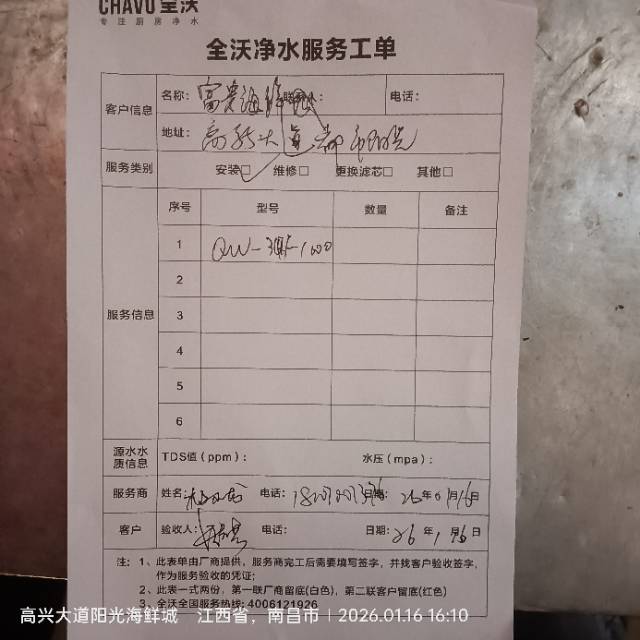 CHAVO全沃
专注厨房净水
全沃净水服务工单
客户信息 名称: 联系人: 电话:
地址: 高新大道
服务类别 安装☑ 维修□ 更换滤芯□ 其他□
服务信息 序号 型号 数量 备注
1
2
3
4
5
6
源水水质信息 TDS值(ppm): 水压(mpa):
服务商 姓名: 电话: 日期: 26年 月16日
客户 验收人: 电话: 日期: 26年1月16日
注: 1、此表单由厂商提供,服务商完工后需要填写签字,并找客户验收签字,
作为服务验收的凭证;
2、此表一式两份,第一联厂商留底(白色),第二联客户留底(红色)
3、全沃全国服务热线: 4006121926
高兴大道阳光海鲜城 江西省,南昌市 | 2026.01.16 16:10